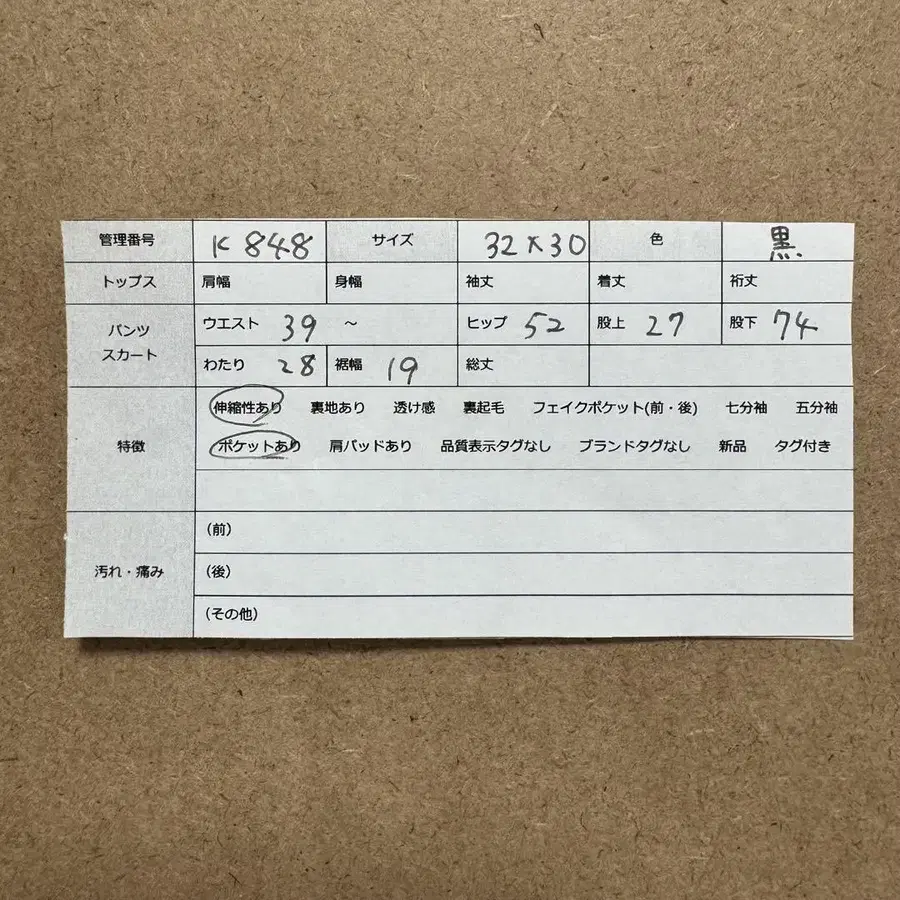 管理番号 K 848 サイズ 32×30 色 黒
トップス 肩幅 身幅 袖丈 着丈 裄丈
パンツ スカート
ウエスト 39 ～ ヒップ 52 股上 27 股下 74
わたり 28 裾幅 19 総丈
特徴
伸縮性あり 裏地あり 透け感 裏起毛 フェイクポケット(前・後) 七分袖 五分袖
ポケットあり 肩パッドあり 品質表示タグなし ブランドタグなし 新品 タグ付き
汚れ・痛み
(前)
(後)
(その他)